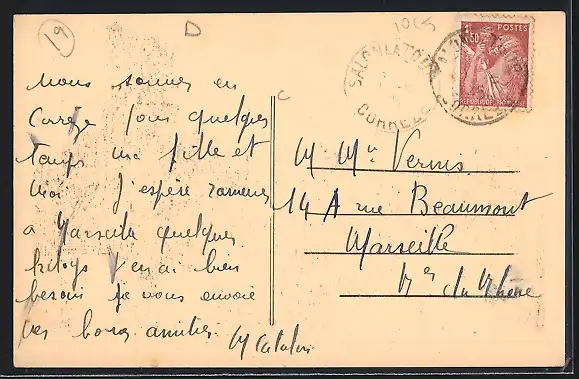 19
D
1945
nous sommes en
Correze pour quelques
temps ma fille et
moi J'espère ramener
à Marseille quelques
kilogs J'en ai bien
besoin je vous envoie
mes bonnes amitiés
C
SALON LA TOUR
CORRÈZE
POSTES
1F50
REPUBLIQUE FRANÇAISE
M Mme Vernis
14 A rue Beaumont
Marseille
Bes du Rhône